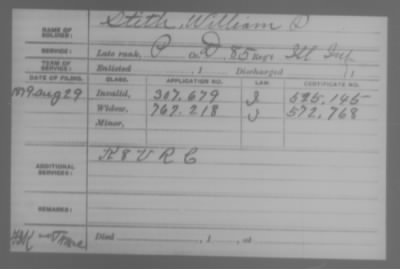 NAME OF SOLDIER: Stith, William D
SERVICE: Late rank, P Co. D, 85 Reg't Ill Inf
TERM OF SERVICE: Enlisted , 1 Discharged , 1
DATE OF FILING. CLASS. APPLICATION NO. LAW. CERTIFICATE NO.
1879 Aug 29 Invalid, 307,679 525,145
Widow, 767,218 572,768
Minor,
ADDITIONAL SERVICES: K 8 V R C
REMARKS:
Died , 1 , at